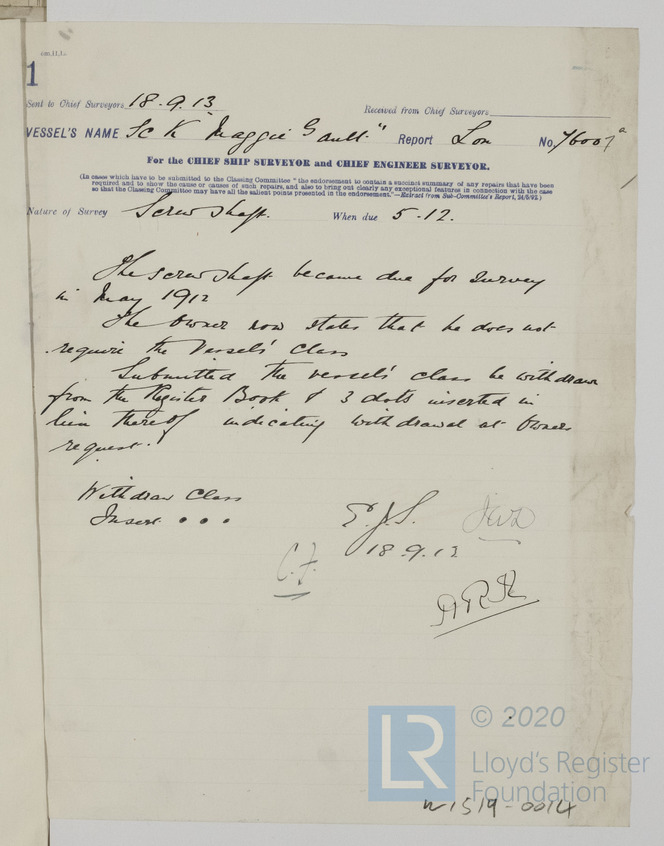 1
Sent to Chief Surveyors 18.9.13
Received from Chief Surveyors
VESSEL'S NAME Sc K "Maggie Gault" Report Lon No. 76007a
For the CHIEF SHIP SURVEYOR and CHIEF ENGINEER SURVEYOR.
(In cases which have to be submitted to the Classing Committee "the endorsement to contain a succinct summary of any repairs that have been
required and to show the cause or causes of such repairs, and also to bring out clearly any exceptional features in connection with the case
so that the Classing Committee may have all the salient points presented in the endorsement."—Extract from Sub-Committee's Report, 24/5/92.)
Nature of Survey Screw Shaft. When due 5-12.
The screw shaft became due for survey
in May 1912
The Owner now states that he does not
require the Vessel's Class
Submitted the vessel's class be withdrawn
from the Register Book & 3 dots inserted in
lieu thereof indicating withdrawal at Owners
request.
Withdraw Class
Insert . . .
E.J.S.
18.9.13
C.F.
© 2020
LR
Lloyd's Register
Foundation
W1519-0014